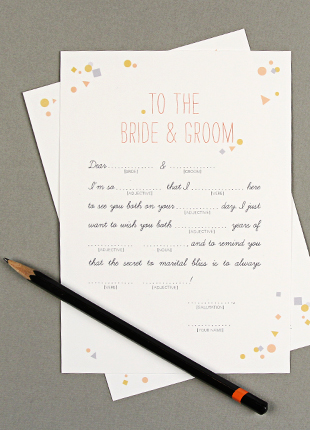 TO THE
BRIDE & GROOM
Dear ............ & ............
[BRIDE] [GROOM]
I'm so ............ that I ............ here
[ADJECTIVE] [VERB]
to see you both on your ............ day. I just
[ADJECTIVE]
want to wish you both ............ years of
[NUMBER]
............ , ............ and to remind you
[ADJECTIVE] [NOUN]
that the secret to marital bliss is to always
............ ............ !
[VERB] [ADJECTIVE]
............ ,
[SALUTATION]
............
[YOUR NAME]